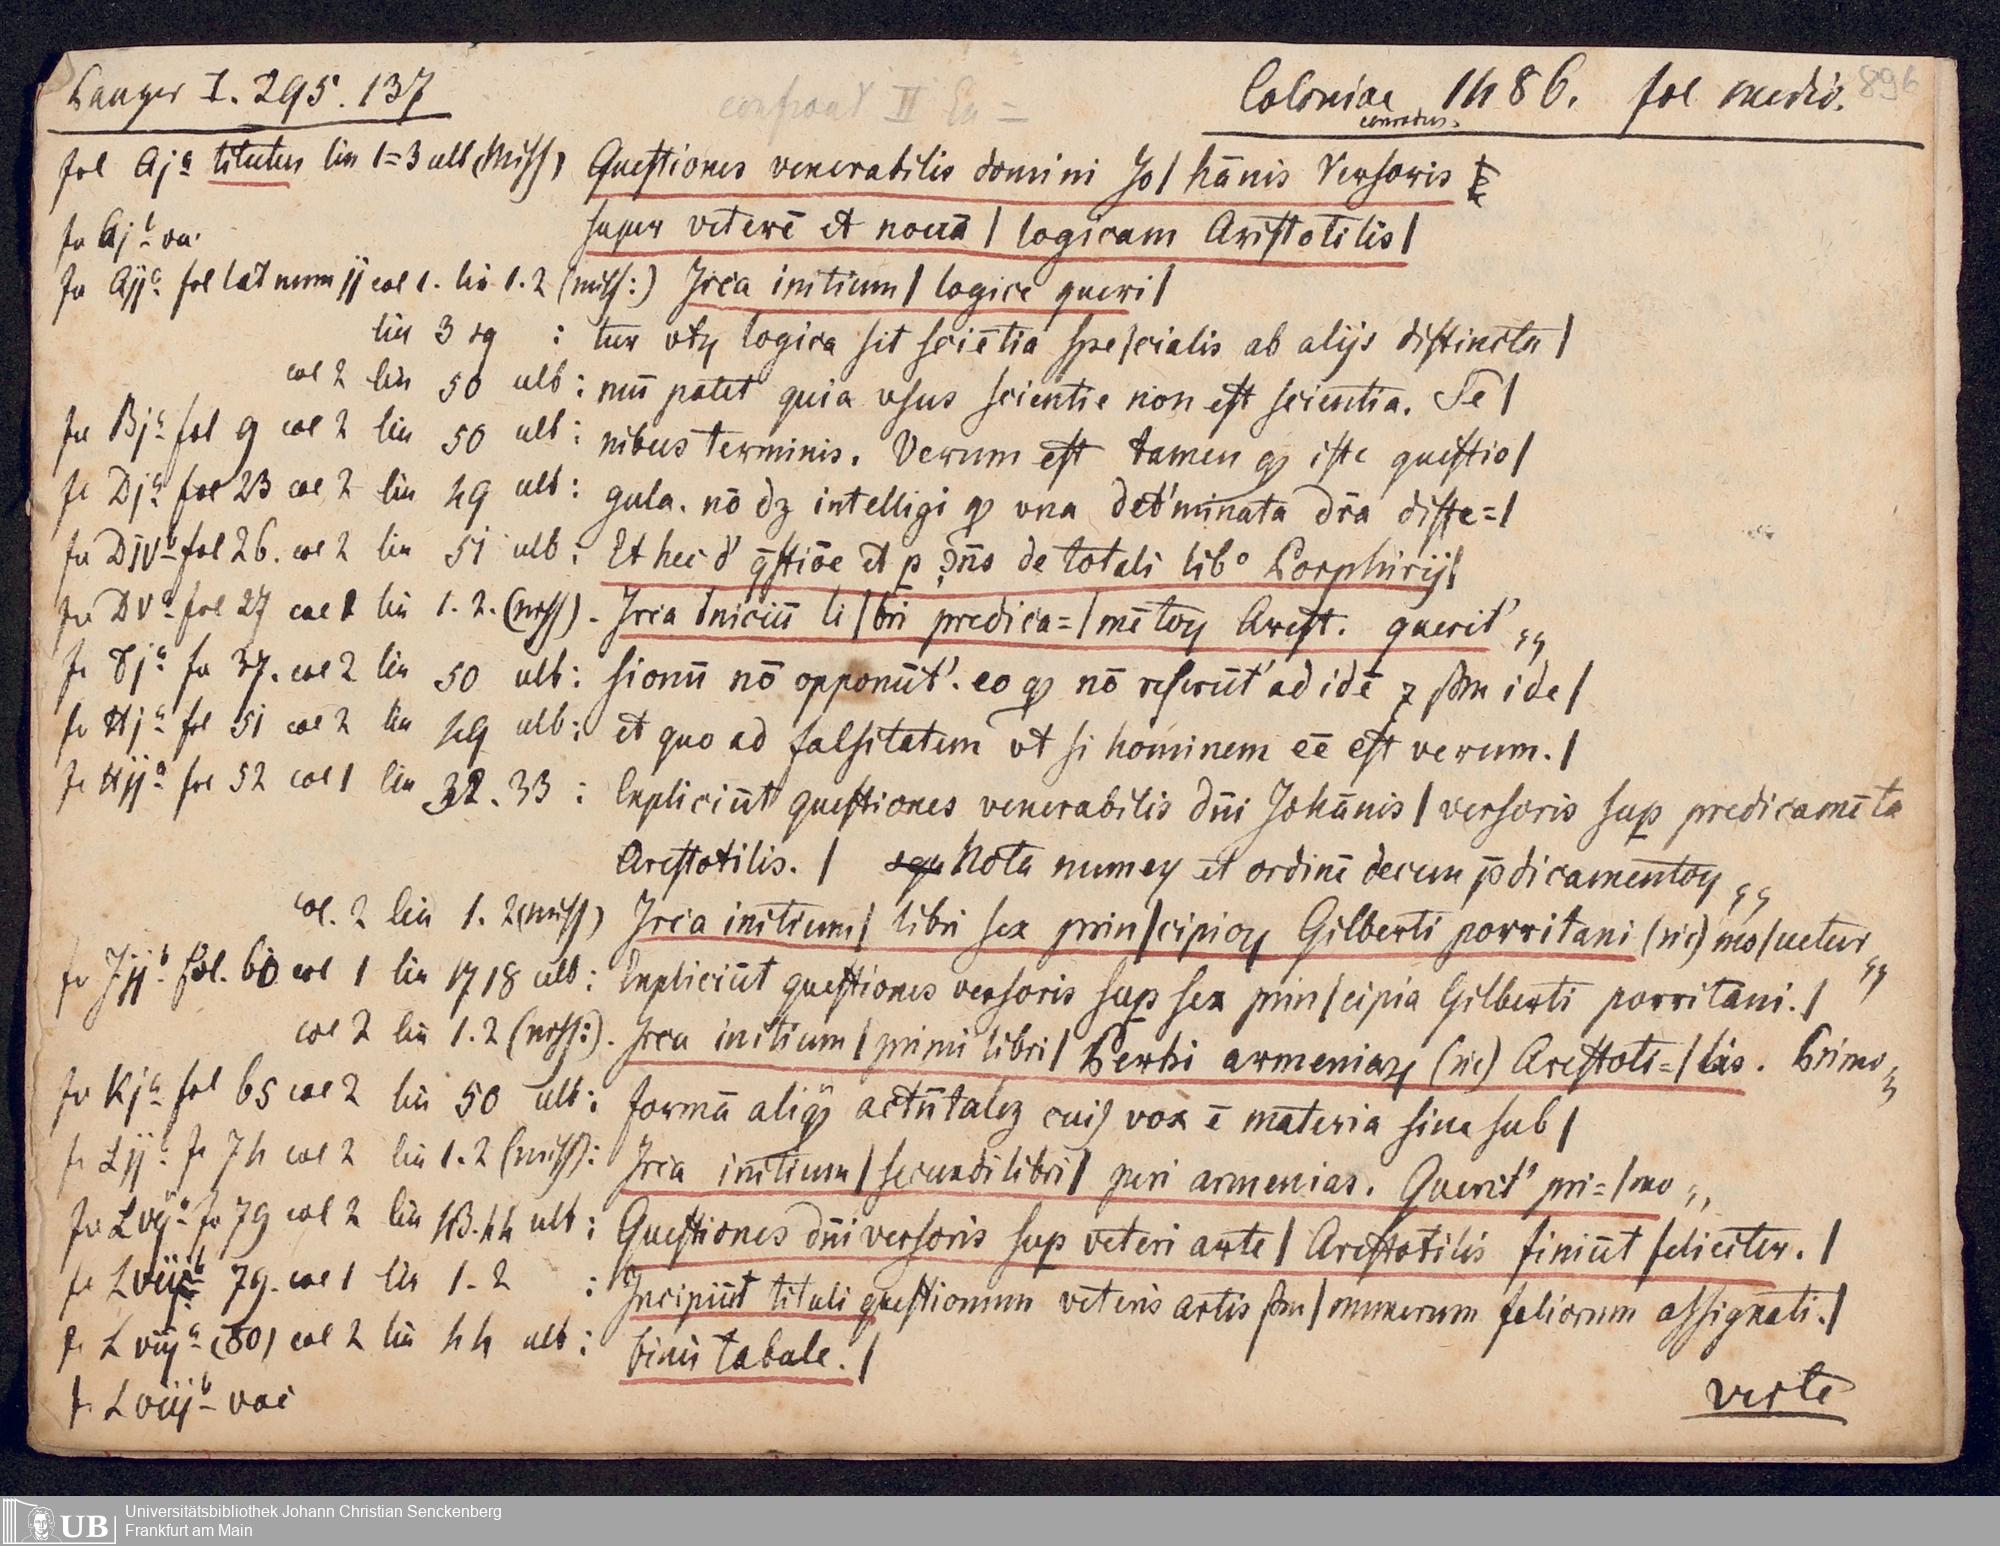 Panzer I. 295. 137
confront II
Coloniae 1486. fol medio. 896
conradus.
fol Aja titulus lin 1=3 ulb (miss) Questiones venerabilis domini Jo/ hānis Versoris
fo Ajb va. super veterē et nouā / logicam Aristotilis /
fo Aija fol lat num ij col 1. lin 1.2 (miss:) Jrca initium / logice queri /
lin 3 sq : tur vtꝝ logica sit sciētia spe/cialis ab alijs distincta /
col 2 lin 50 ulb : mū patet quia vsus scientie non est scientia. Te /
fo Bja fol 9 col 2 lin 50 ulb : nibus terminis. Verum est tamen ꝙ iste questio /
fo Dja fol 23 col 2 lin 49 ulb : gula. nō dz intelligi ꝙ vna det'minata dr̄a diffe= /
fo Divb fol 26. col 2 lin 51 ulb : Et hec d' q̄stiōe et p ꝯn̄s de totali libo Porphirij /
fo Dva fol 27 col 1 lin 1.2. (miss). Jrca iniciū li / bri predica= / mētoꝝ Arest. querit' „
fo Fja fo 37. col 2 lin 50 ulb : sionū nō opponūt'. eo ꝙ nō referūt' ad idē ⁊ ẜm ide /
fo Hja fol 51 col 2 lin 49 ulb : et quo ad falsitatem vt si hominem eē est verum. /
fo Hija fol 52 col 1 lin 32.33 : Expliciūt questiones venerabilis dn̄i Johānis / versoris sup predicamēta
Arestotilis. / Nota numeꝝ et ordinē decem p̄dicamentoꝝ „
col. 2 lin 1. 2 (miss) Jrca initium / libri sex prin/cipioꝝ Gilberti porritani (sic) mo/uetur „
fo Jijb fol. 60 col 1 lin 17 18 ulb : Expliciūt questiones versoris sup sex prin/cipia Gilberti porritani. /
col 2 lin 1. 2 (miss:). Jrca initium / primi libri / Perhi armeniaꝝ (sic) Arestoti= / lis. Primo „
fo Kja fol 65 col 2 lin 50 ulb : formā aliqꝫ actūtalez cuiꝰ vox ē materia siue sub /
fo Lij fo 74 col 2 lin 1.2 (miss): Jrca initium / secundi libri / peri armenias. Querit' pri= / mo „
fo Lvija fo 79 col 2 lin 43.44 ulb : Questiones dn̄i versoris sup veteri arte / Arestotilis finiūt feliciter. /
fo Lvijb 79. col 1 lin 1.2 : Incipiūt tituli questionum veteris artis ẜm / numerum foliorum assignati. /
fo Lviija (80) col 2 lin 44 ulb : finis tabule. /
fo Lviijb vac
verte
Universitätsbibliothek Johann Christian Senckenberg
UB Frankfurt am Main